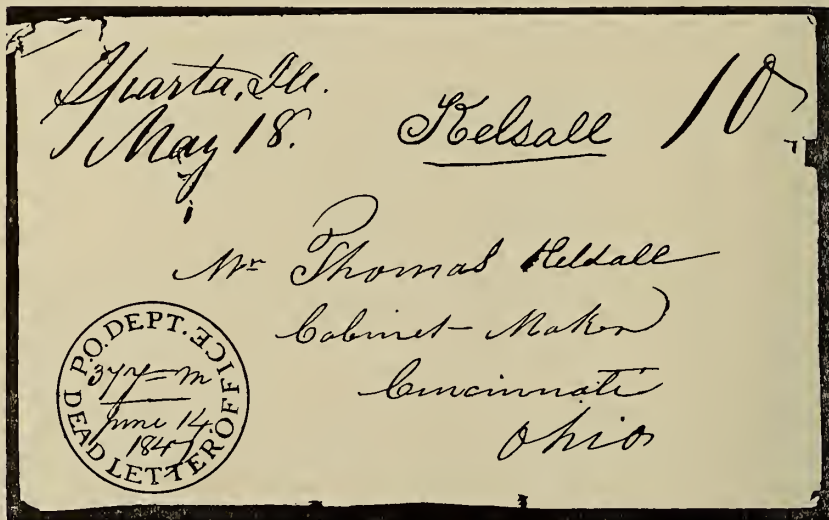 Sparta, Ill.
May 18.
Kelsall
10
Mr Thomas Kelsall
Cabinet Maker
Cincinnati
Ohio
P.O. DEPT.
DEAD LETTER OFFICE
June 14.